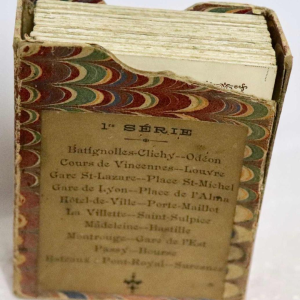 1re SÉRIE
Batignolles-Clichy--Odéon
Cours de Vincennes--Louvre
Gare St-Lazare--Place St-Michel
Gare de Lyon--Place de l'Alma
Hôtel-de-Ville--Porte-Maillot
La Villette--Saint-Sulpice
Madeleine--Bastille
Montrouge--Gare de l'Est
Passy--Bourse
Bateaux: Pont-Royal--Suresnes